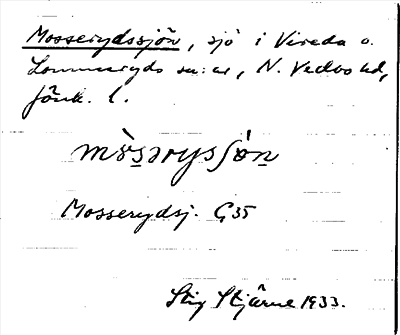 Mosserydssjön, sjö i Vireda o.
Lommaryds sn:ar, N. Vedbo hd,
Jönk. l.
mòsərysſön
Mosserydsj. G35
Stig Stjärne 1933.